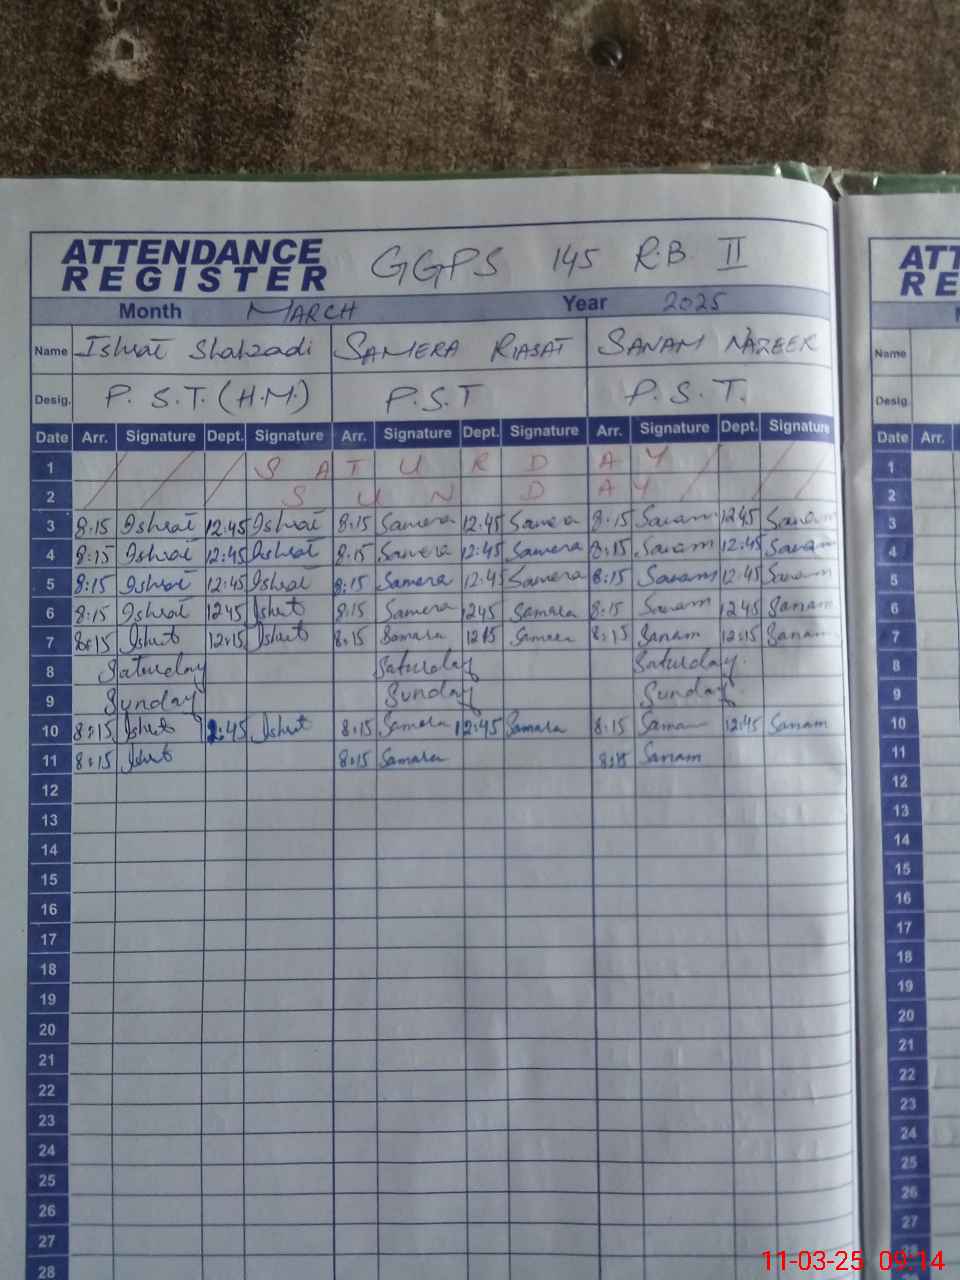 ATTENDANCE REGISTER GGPS 145 R.B II
Month MARCH Year 2025
Name Ishrat Shahzadi SAMERA RIASAT SANAM NAZEER
Desig. P.S.T.(H.M.) P.S.T P.S.T.
Date Arr. Signature Dept. Signature Arr. Signature Dept. Signature Arr. Signature Dept. Signature
1 SATURDAY
2 SUNDAY
3 8:15 Ishrat 12:45 Ishrat 8:15 Samera 12:45 Samera 8:15 Sanam 12:45 Sanam
4 8:15 Ishrat 12:45 Ishrat 8:15 Samera 12:45 Samera 8:15 Sanam 12:45 Sanam
5 8:15 Ishrat 12:45 Ishrat 8:15 Samera 12:45 Samera 8:15 Sanam 12:45 Sanam
6 8:15 Ishrat 1245 Ishrat 8:15 Samera 1245 Samara 8:15 Sanam 12:45 Sanam
7 8:15 Ishrat 12:15 Ishrat 8:15 Samara 1215 Samara 8:15 Sanam 12:15 Sanam
8 Saturday Saturday Saturday.
9 Sunday Sunday Sunday.
10 8:15 Ishrat 2:45 Ishrat 8:15 Samara 12:45 Samara 8:15 Sanam 12:45 Sanam
11 8:15 Ishrat 8:15 Samara 8:15 Sanam
12
13
14
15
16
17
18
19
20
21
22
23
24
25
26
27
28
ATT
RE
Name
Desig.
Date Arr.
1
2
3
4
5
6
7
8
9
10
11
12
13
14
15
16
17
18
19
20
21
22
23
24
25
26
27
11-03-25 09:14